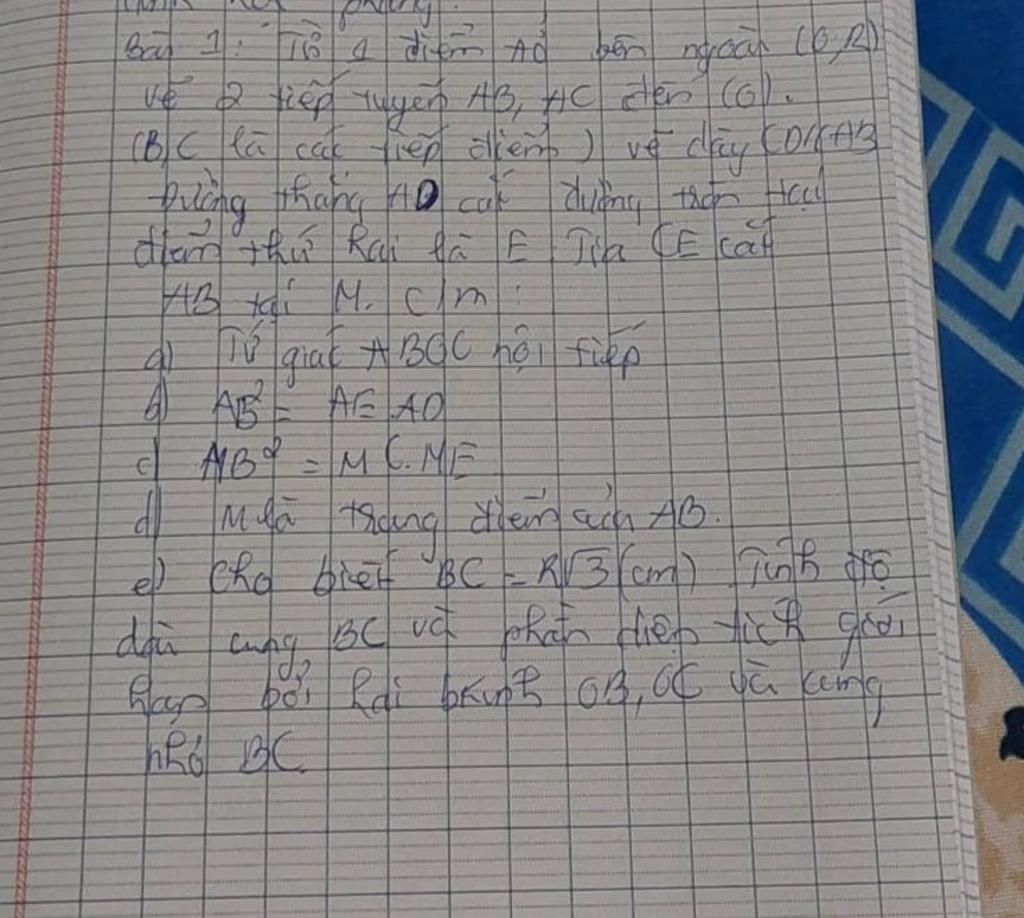 Bài 1: Từ 1 điểm A ở bên ngoài (O;R)
vẽ 2 tiếp tuyến AB, AC đến (O).
(B, C là các tiếp điểm) vẽ dây CD // AB
Đường thẳng AD cắt đường tròn tại
điểm thứ hai là E. Tia CE cắt
AB tại M. C/m:
a) Tứ giác ABOC nội tiếp
b) AB² = AE.AD
c) MB² = MC.ME
d) M là trung điểm của AB.
e) Cho biết BC = R√3 (cm). Tính độ
dài cung BC và phần diện tích giới
hạn bởi hai bkính OB, OC và cung
nhỏ BC.